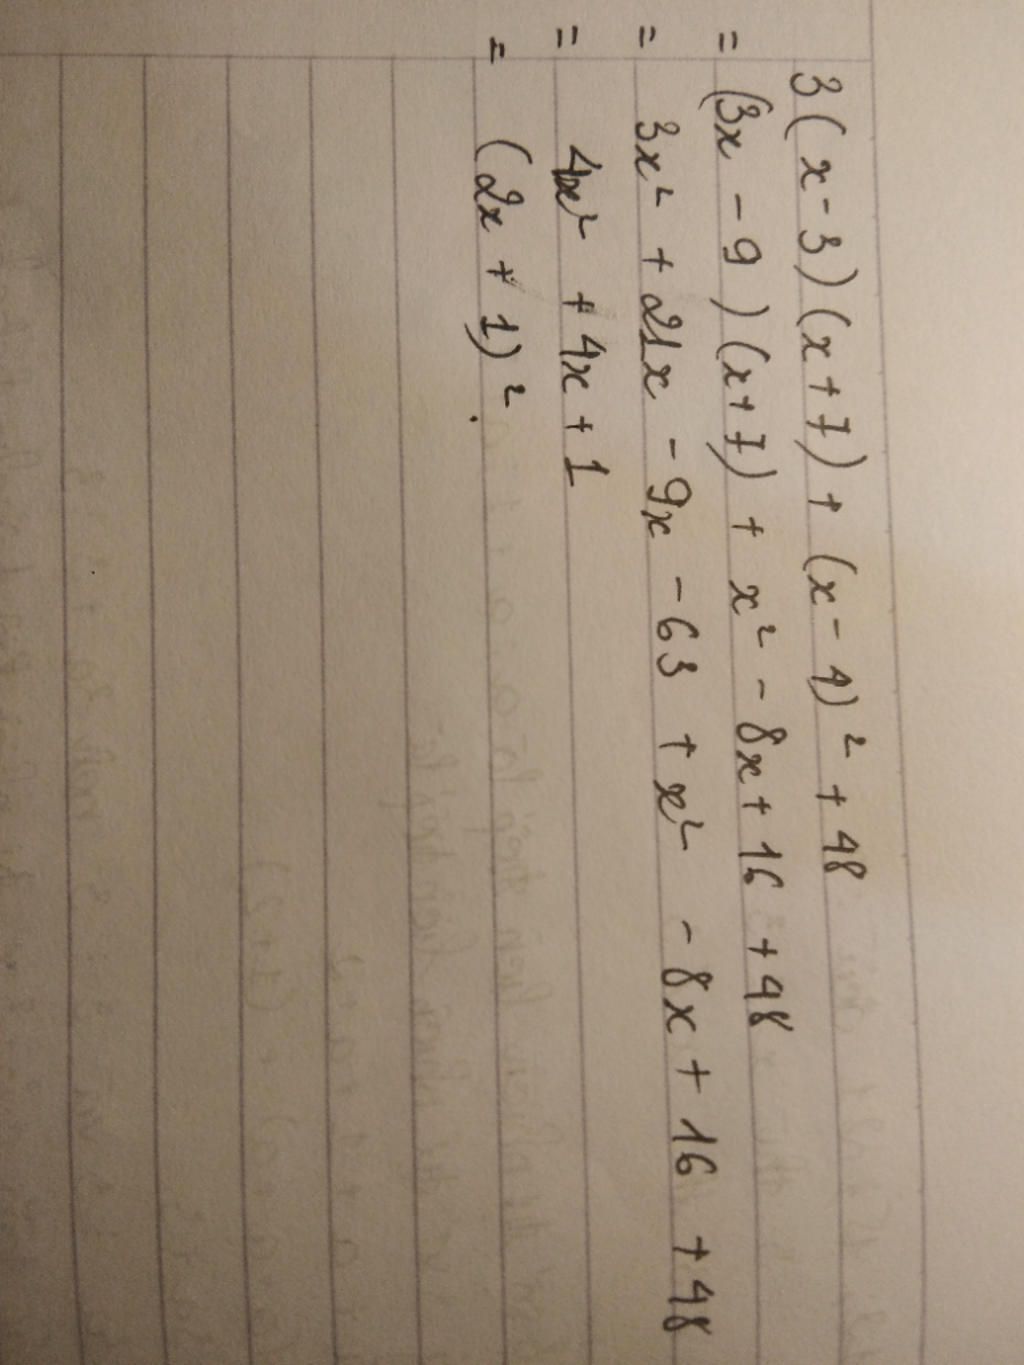 3(x-3)(x+7) + (x-4)² + 48
= (3x - 9)(x+7) + x² - 8x + 16 + 48
= 3x² + 21x - 9x - 63 + x² - 8x + 16 + 48
= 4x² + 4x + 1
= (2x + 1)².